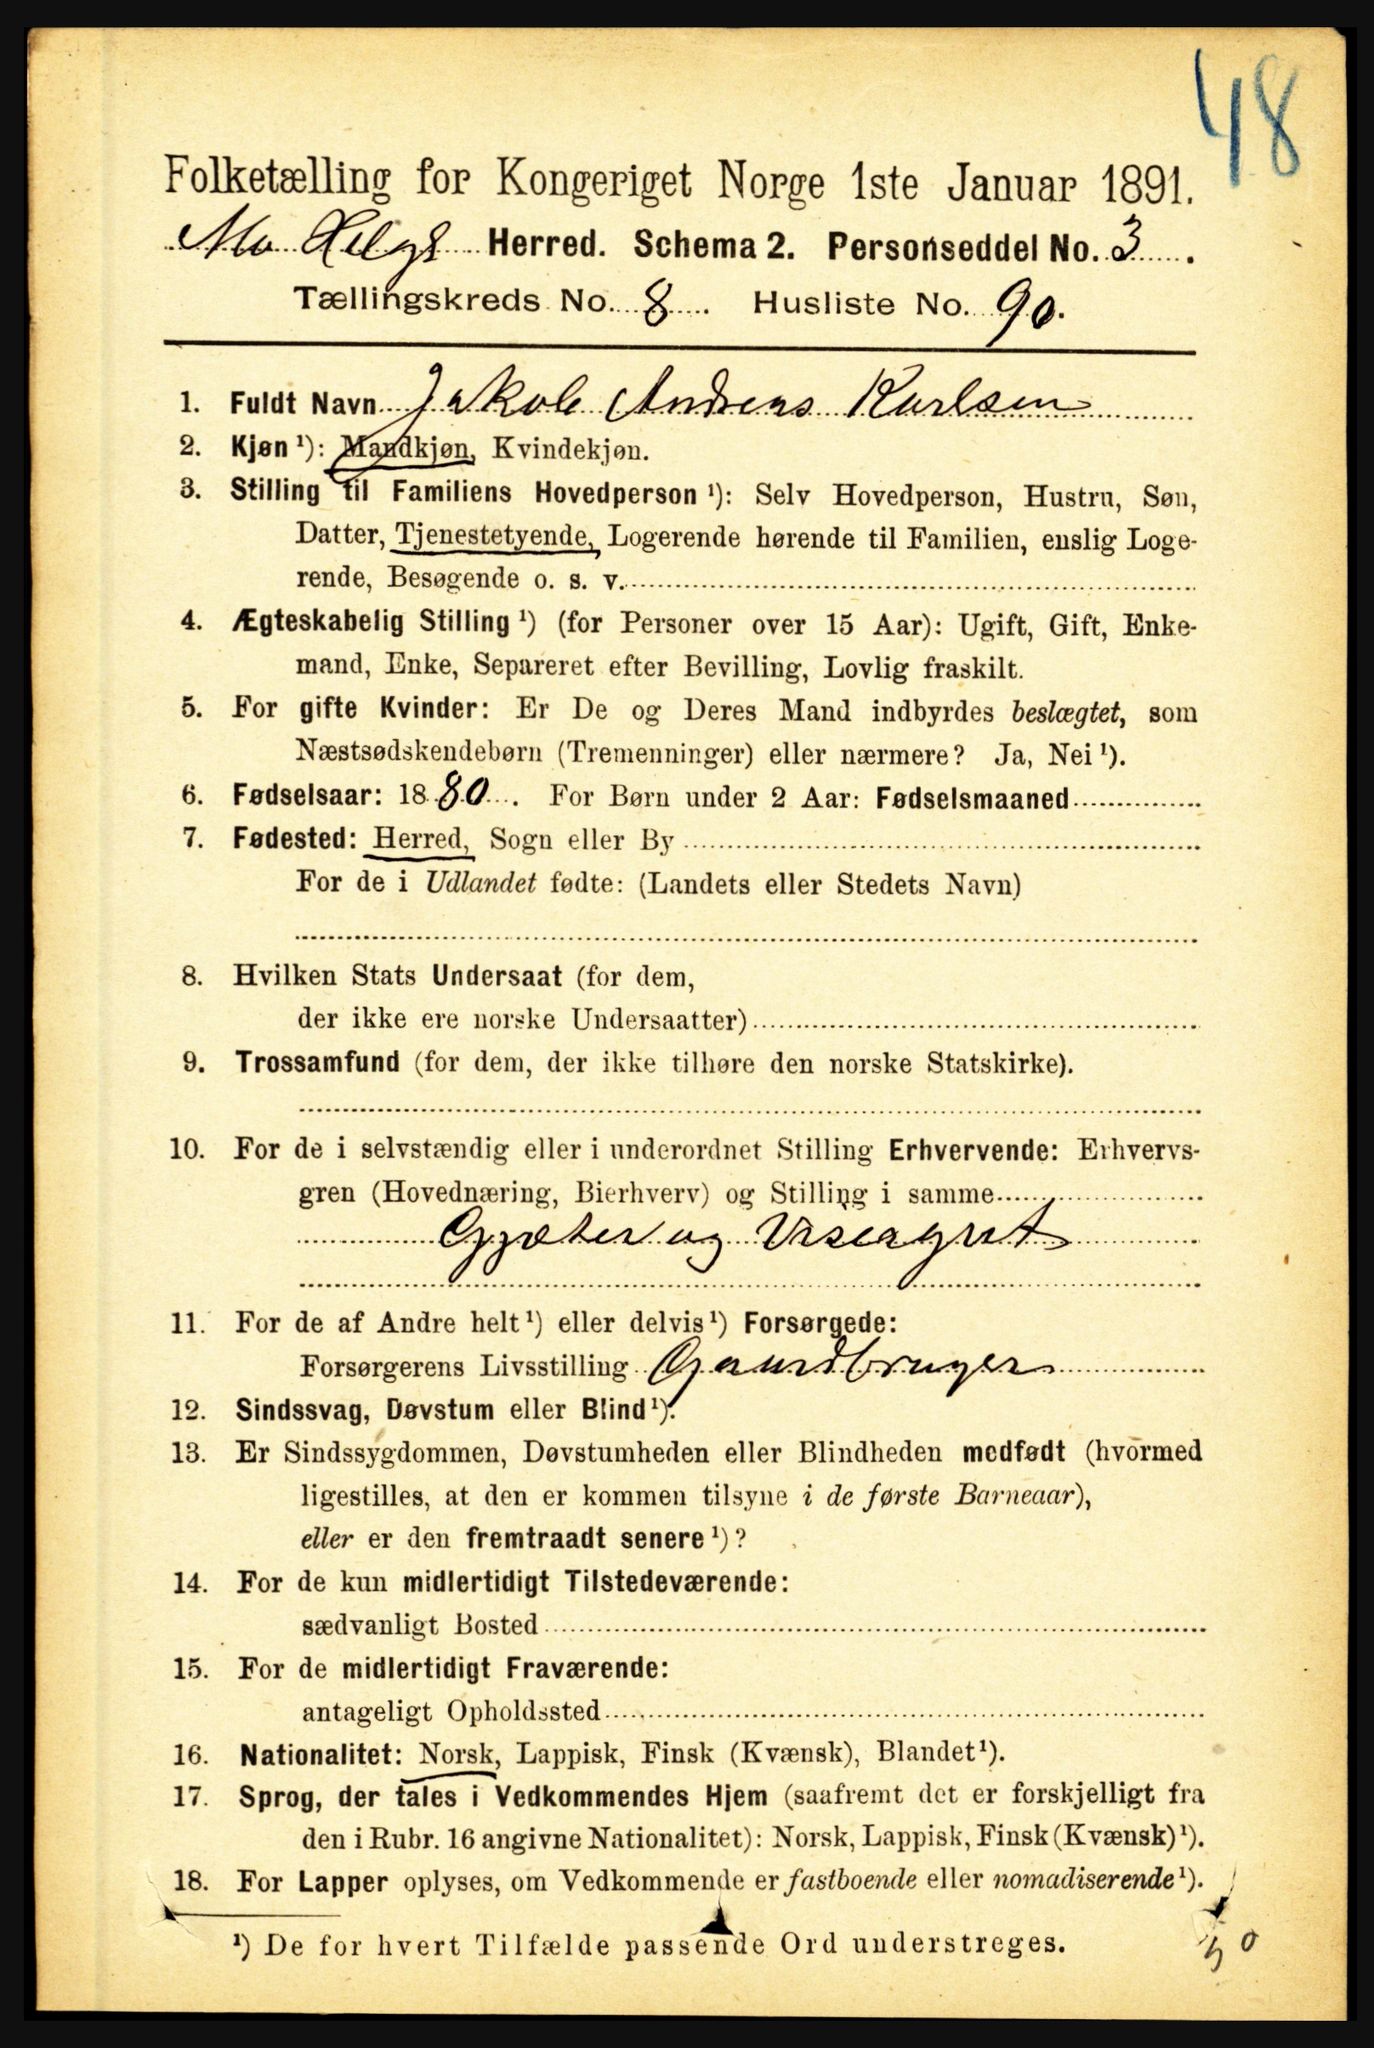 48
Folketælling for Kongeriget Norge 1ste Januar 1891.
Mo Helgl Herred. Schema 2. Personseddel No. 3.
Tællingskreds No. 8. Husliste No. 90.
1. Fuldt Navn Jakob Andreas Karlsen
2. Kjøn ¹): Mandkjøn, Kvindekjøn.
3. Stilling til Familiens Hovedperson ¹): Selv Hovedperson, Hustru, Søn,
Datter, Tjenestetyende, Logerende hørende til Familien, enslig Loge-
rende, Besøgende o. s. v.
4. Ægteskabelig Stilling ¹) (for Personer over 15 Aar): Ugift, Gift, Enke-
mand, Enke, Separeret efter Bevilling, Lovlig fraskilt.
5. For gifte Kvinder: Er De og Deres Mand indbyrdes beslægtet, som
Næstsødskendebørn (Tremenninger) eller nærmere? Ja, Nei ¹).
6. Fødselsaar: 1880. For Børn under 2 Aar: Fødselsmaaned
7. Fødested: Herred, Sogn eller By
For de i Udlandet fødte: (Landets eller Stedets Navn)
8. Hvilken Stats Undersaat (for dem,
der ikke ere norske Undersaatter)
9. Trossamfund (for dem, der ikke tilhøre den norske Statskirke).
10. For de i selvstændig eller i underordnet Stilling Erhvervende: Erhvervs-
gren (Hovednæring, Bierhverv) og Stilling i samme
Gjæter og
11. For de af Andre helt ¹) eller delvis ¹) Forsørgede:
Forsørgerens Livsstilling Gaardbruger
12. Sindssvag, Døvstum eller Blind ¹).
13. Er Sindssygdommen, Døvstumheden eller Blindheden medfødt (hvormed
ligestilles, at den er kommen tilsyne i de første Barneaar),
eller er den fremtraadt senere ¹)?
14. For de kun midlertidigt Tilstedeværende:
sædvanligt Bosted
15. For de midlertidigt Fraværende:
antageligt Opholdssted
16. Nationalitet: Norsk, Lappisk, Finsk (Kvænsk), Blandet ¹).
17. Sprog, der tales i Vedkommendes Hjem (saafremt det er forskjelligt fra
den i Rubr. 16 angivne Nationalitet): Norsk, Lappisk, Finsk (Kvænsk) ¹).
18. For Lapper oplyses, om Vedkommende er fastboende eller nomadiserende ¹).
¹) De for hvert Tilfælde passende Ord understreges.